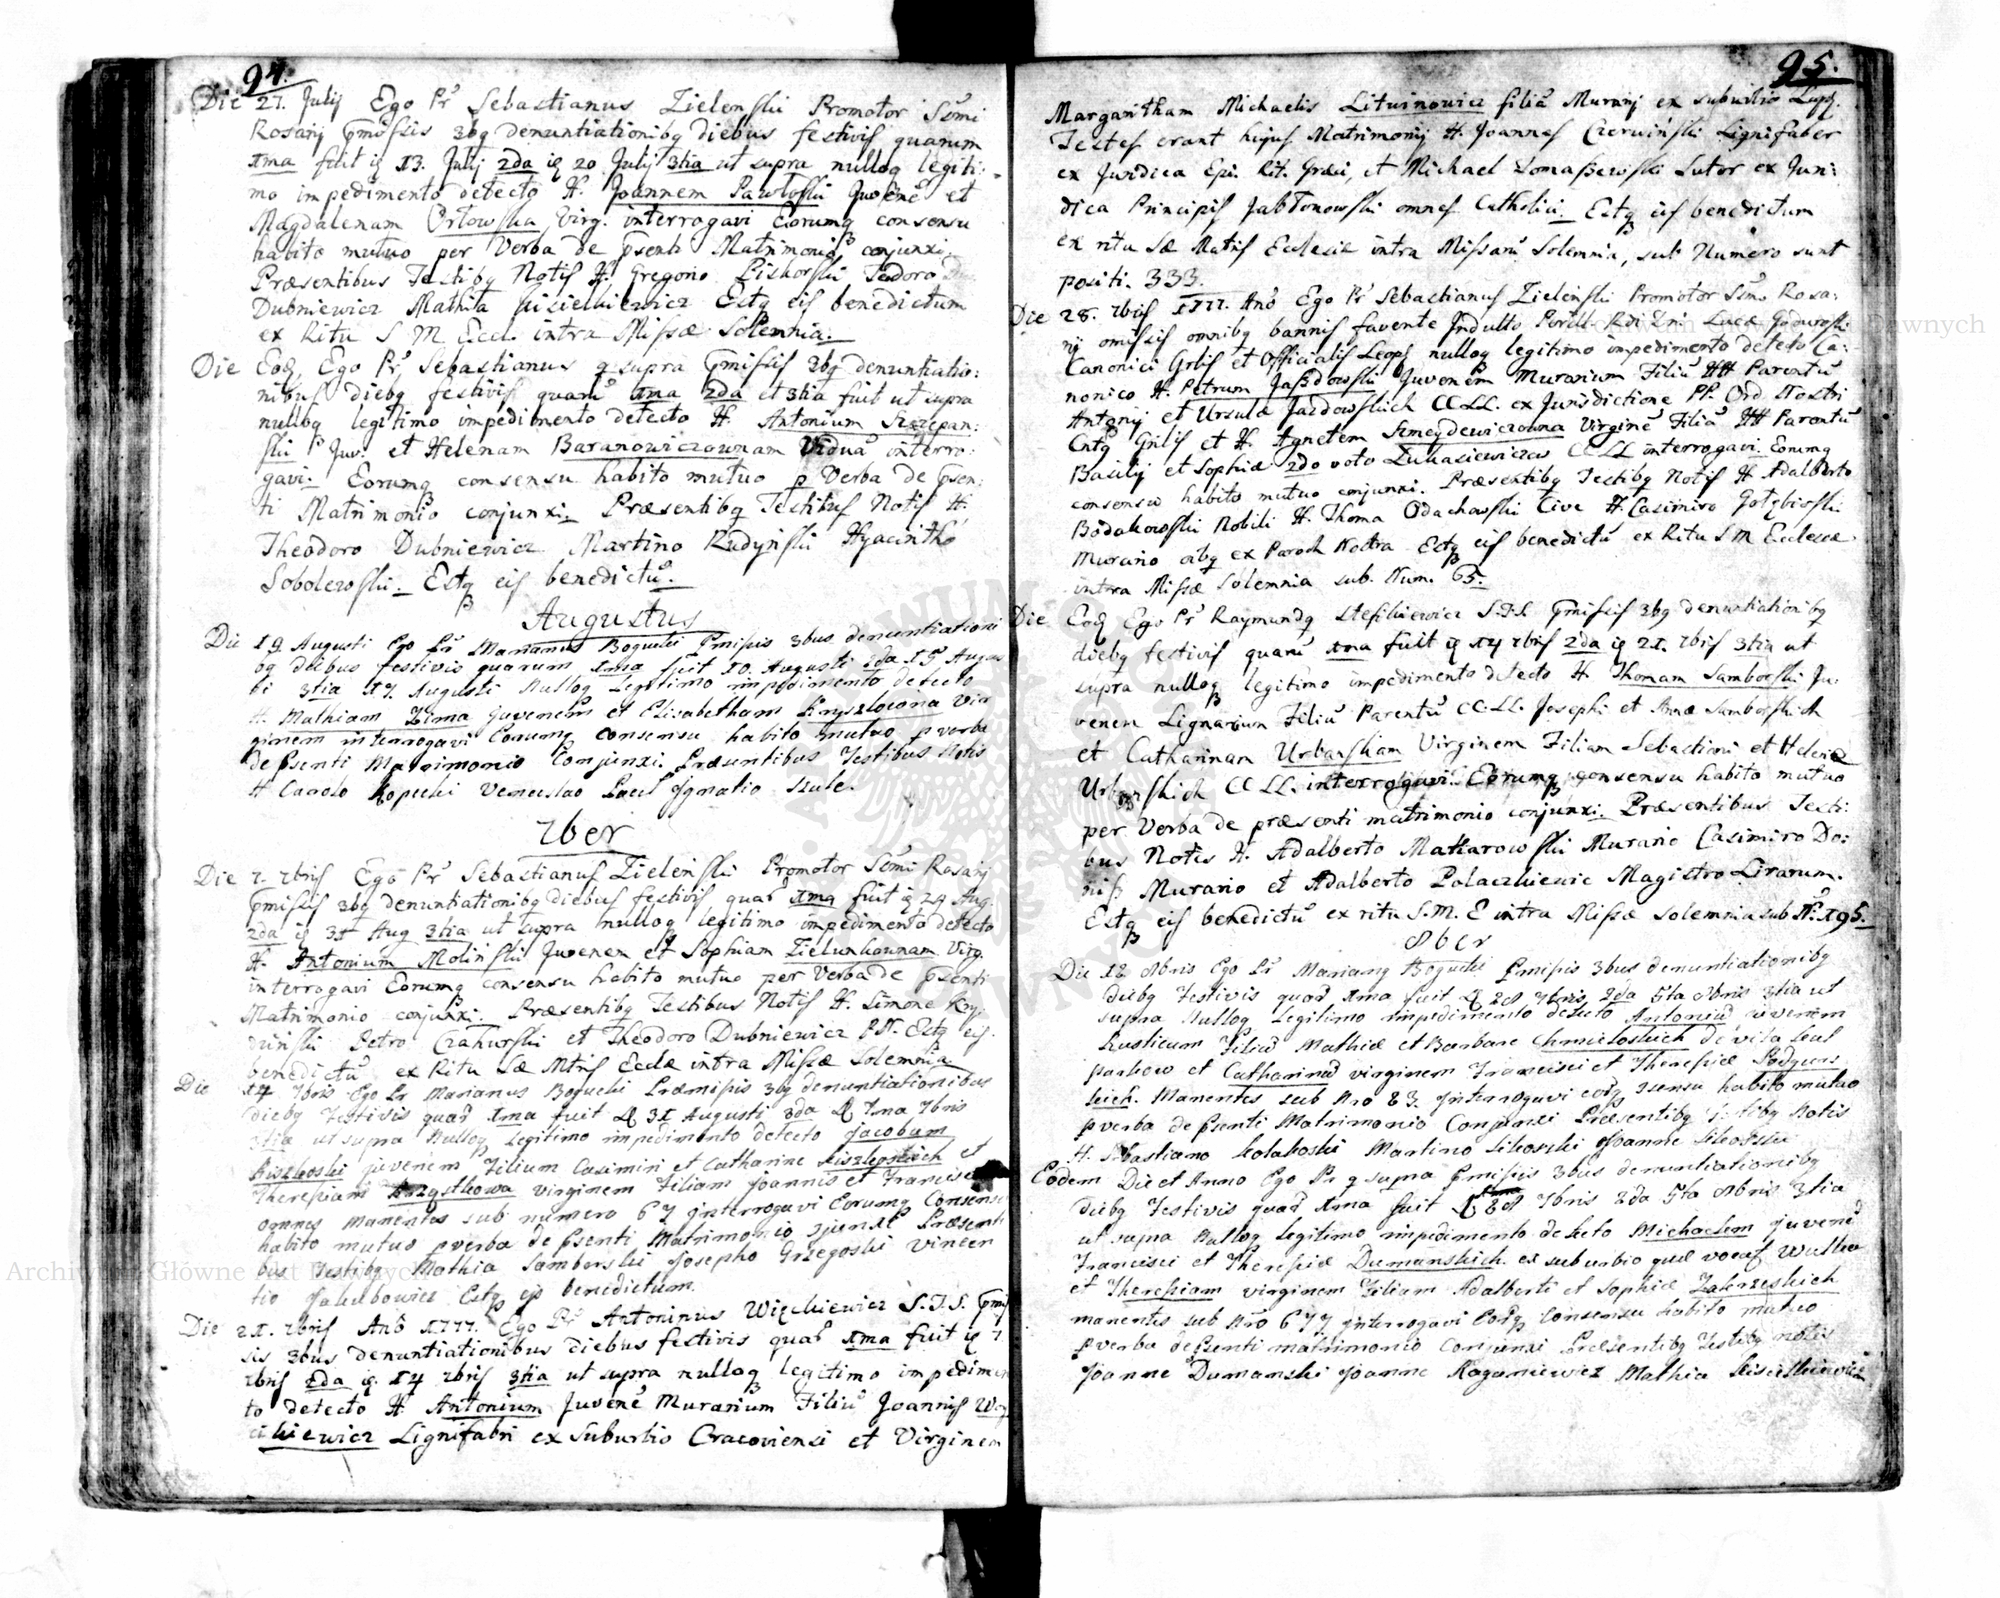 94.
Die 27. Julij Ego Pr Sebastianus Zielenski Promotor Ssmi
Rosarij pmissis 3bq denuntiationibq diebus festivis quarum
1ma fuit q 13. Julij 2da q 20 Julij 3tia ut supra nulloq legiti:
mo impedimento detecto H. Joannem Pawłoski Juvenē et
Magdalenam Orłowska Virg. interrogavi Eorumq consensu
habito mutuo per Verba de psenti Matrimonio conjunxi
Præsentibus Testibq Notis H. Gregorio Piskorski Teodoro
Dubniewicz Mathia Kisielkiewicz Estq eis benedictum
ex Ritu S M Eccl. intra Missæ Solemnia.
Die Eod, Ego Pr, Sebastianus q supra pmissis 3bq denuntiatio:
nibus diebq festivis quarū 1ma 2da et 3tia fuit ut supra
nulloq legitimo impedimento detecto H. Antonium Szczepan:
ski Juv. et Helenam Baranowiczownam Viduā interro:
gavi. Eorumq consensu habito mutuo p Verba de psen:
ti Matrimonio conjunxi. Præsentibq Testibus Notis H.
Theodoro Dubniewicz Martino Rudyński Hyacintho
Sobolewski. Estq eis benedictū.
Augustus
Die 19 Augusti Ego Pr Marianus Bogucki Pmissis 3bus denuntiationi
bq diebus festivis quarum 1ma fuit 10. Augusti 2da 15 Augus
ti 3tia 17 Augusti Nulloq Legitimo impedimento detecto
H. Mathiam Zima Juvenem et Elisabetham Vir
ginem interrogavi Eorumq consensu habito mutuo p verba
de Psenti Matrimonio Conjunxi. Præsentibus Testibus Notis
H Carolo Kopecki Venceslao Ignatio Szulc.
7ber
Die 7. 7bris Ego Pr Sebastianus Zielenski Promotor Ssmi Rosarij
pmissis 3bq denuntiationibq diebus festivis, quar 1ma fuit q 24 Aug.
2da q 31 Aug 3tia ut supra nulloq legitimo impedimento detecto
H. Antonium Molinski Juvenem et Sophiam Zielunkaunam Virg.
interrogavi Eorumq consensu habito mutuo per Verba de psenti
Matrimonio conjunxi. Præsentibq Testibus Notis H. Simone Ko
dzinski Petro Czahurski et Theodoro Dubniewicz PN. Estq eis
benedictū ex Ritu Sæ Mtris Ecclæ intra Missæ Solemnia
Die 14 7bris Ego Pr Marianus Bogucki Præmissis 3bq denuntiationibus
diebq Festivis quar 1ma fuit q 31 Augusti 2da q 7ma 7bris
3tia ut supra Nulloq Legitimo impedimento detecto Jacobum
juvenem Filium Casimiri et Catharine et
Theresiam Krzystkowa virginem Filiam Joannis et Francisc
omnes Manentes sub numero 67 Interrogavi Eorumq Consensu
habito mutuo p verba de Psenti Matrimonio Præsenti
bus Testibq Mathia Samborski Josepho Grzegoski Vincen
tio Jakubowicz Estq eis benedictum.
Die 21. 7bris Anō 1777. Ego Pr Antoninus Więckiewicz S.T.S. pmis
sis 3bus denuntiationibus diebus festivis quar 1ma fuit q 7
7bris 2da q 14 7bris 3tia ut supra nulloq legitimo impedimen
to detecto H. Antonium Juvenē Murarium Filiū Joannis Woy
cikiewicz Lignifabri ex Suburbio Cracoviensi et Virginem
95.
Margaritham Michaelis Litwinowicz filiā Murarij ex suburbio
Testes erant hujus Matrimonij H Joannes Czerwiński Lignifaber
ex Juridica Epi. Rit. Græci, et Michael Tomaszewski Sutor ex Juri:
dica Principis Jabłonowski omnes Catholici. Estq eis benedictum
ex ritu Sæ Matris Ecclesiæ intra Missarū Solemnia, sub Numero sunt
positi. 333.
Die 28. 7bris 1777. Anō Ego Pr Sebastianus Zielenski Promotor Ssmi Rosa:
rij omissis omnibq bannis favente Indulto Perill. Rdi Dni Lucæ
Canonici Grlis et Officialis Leops nulloq legitimo impedimento detecto Ca:
nonico H. Petrum Jazdowski Juvenem Murarium Filiū HH Parentū
Antonij et Ursulæ Jazdowskich CCLL. ex Jurisdictione PP. Ord. Nostri
Cntq Grilis et H. Agnetem Szmeydewiczowna Virginē Filiā HH Parentū
Basilij et Sophiæ 2do voto Lukasiewiczow CCLL interrogavi. Eorumq
consensu habito mutuo conjunxi. Præsentibq Testibq Notis H Adalberto
Bodakowski Nobili H. Thoma Odachowski Cive H. Casimiro Gołębioski
Murario oibq ex Paroch Nostra Estq eis benedictū ex Ritu S M Ecclesiæ
intra Missæ Solemnia sub. Num. 65.
Die Eod Ego Pr Raymundq Stefikiewicz S.T.L. pmissis 3bq denuntiationibq
diebq festivis quarū 1ma fuit q 14 7bris 2da q 21. 7bris 3tia ut
supra nulloq legitimo impedimento detecto H Thomam Samborski Ju:
venem Lignarium Filiū Parentū CC.LL. Josephi et Annæ Samborskich
et Catharinam Urbanskam Virginem Filiam Sebastiani et Helenæ
Urbanskich CC LL. interrogavi. Eorumq consensu habito mutuo
per Verba de præsenti matrimonio conjunxi. Præsentibus Testi:
bus Notis H. Adalberto Makarowski Murario Casimiro Do:
nis Murario et Adalberto Polaczkiewic Magistro Lirarum.
Estq eis benedictū ex ritu S.M. E intra Missæ solemnia sub N° 195.
8ber
Die 12 8bris Ego Pr Marianq Bogucki Pmissis 3bus denuntiationibq
diebq Festivis quar 1ma fuit q 28 7bris 2da 5ta 8bris 3tia ut
supra Nulloq Legitimo impedimento detecto Antoniū juvenem
Rusticum Filiū Mathiæ et Barbare Chmieloskich de villa
parkow et Catharinā virginem Francisci et Theresiæ Podgurs
kich. Manentes sub Nro 83. Interrogavi eorq 3sensu habito mutuo
p verba de Psenti Matrimonio Conjunxi Præsentibq Testibq Notis
H. Sebastiano Kolakoski Martino Sikorski Joanne
Eodem Die et Anno Ego Pr q supra Pmissis 3bus denuntiationibq
diebq Festivis quar 1ma fuit q 28 7bris 2da 5ta 8bris 3tia
ut supra Nulloq Legitimo impedimento detecto Michaelem juvenē
Francisci et Theresiæ Dumanskich ex suburbio quē vocat Wulka
et Theresiam virginem Filiam Adalberti et Sophiæ Zakrzeskich
manentes sub Nro 677 Interrogavi Eorq Consensu habito mutuo
p verba de Psenti matrimonio Conjunxi Præsentibq Testibq notis
Joanne Dumanski Joanne Roganiewicz Mathia Kisielkiewicz
Archiwum Główne Akt Dawnych
Archiwum Główne Akt Dawnych